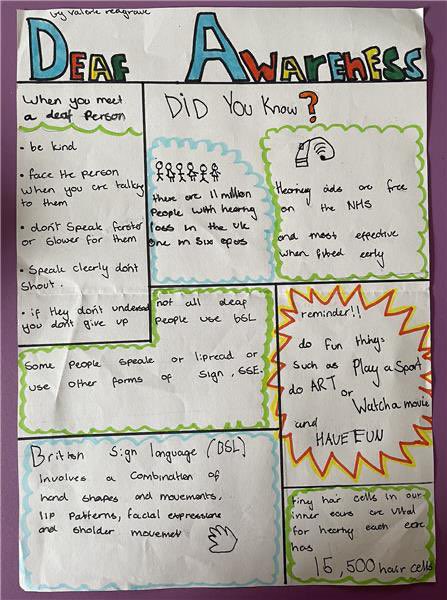 by Valerie readgrave
DEAF AWARENESS
When you meet
a deaf person
• be kind
• face the person
When you are talking
to them
• don't speak faster
or slower for them
• Speak clearly don't
Shout.
• if they don't understand
you don't give up
DID You Know?
there are 11 million
People with hearing
loss in the UK
one in Six
Hearing aids are free
on the NHS
and most effective
when fitted early
not all deaf
people use BSL
Some People speak or lipread or
use other forms of sign, SSE.
reminder!!
do Fun things
Such as Play a Sport
do ART or
Watch a movie
and
HAVE FUN
British Sign language (BSL)
Involves a Combination of
hand shapes and movements,
lip Patterns, facial expressions
and sholder movemet
tiny hair cells in our
inner ears are vital
for hearing each ear
has
15,500 hair cells